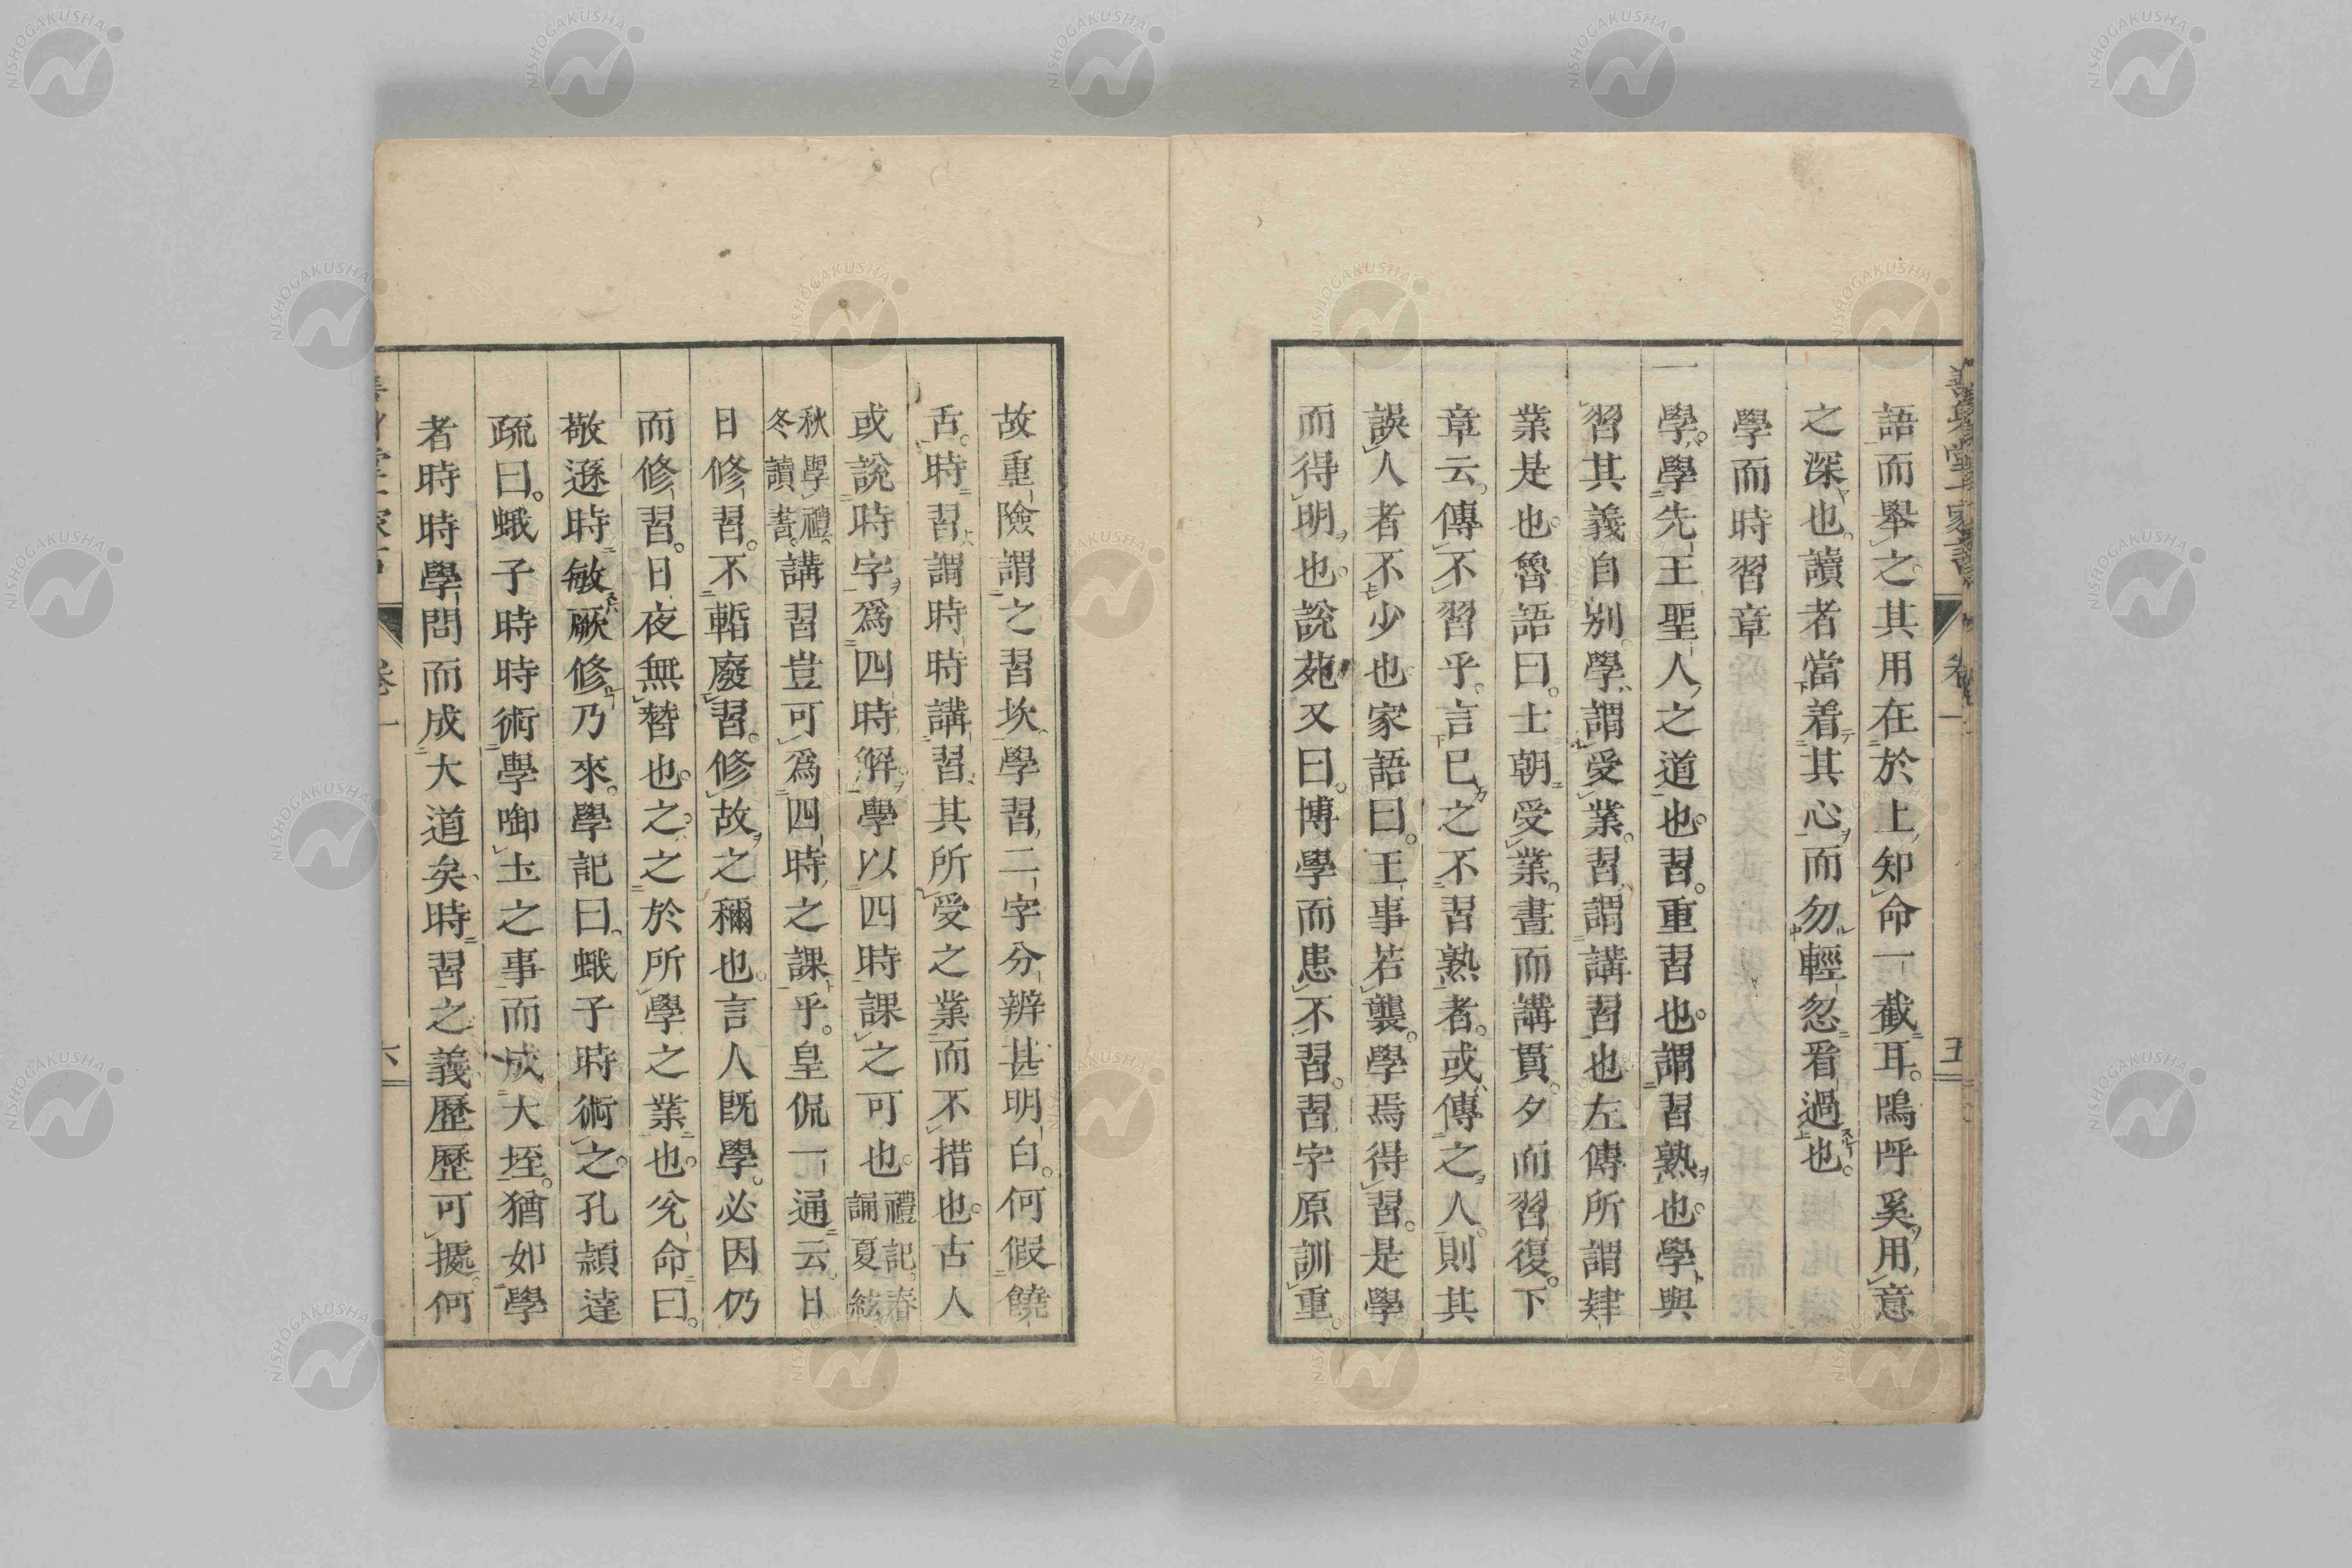 語而舉之其用在於上知命一截耳。嗚呼奚用意
之深也。讀者當着其心而勿輕忽看過也。
學而時習章
一學。學先王聖人之道也。習。重習也。謂習熟也。學與
習其義自別。學謂受業。習謂講習也左傳所謂肄
業是也。魯語曰。士朝受業。晝而講貫。夕而習復。下
章云。傳不習乎。言己之不習熟者。或傳之人。則其
誤人者不少也家語曰。王事若襲。學焉得習。是學
而得明也。說苑又曰。博學而患不習。習字原訓重
五
故重險謂之習坎。學習二字分辨甚明白。何假饒
舌。時習謂時時講習其所受之業而不措也。古人
或說時字爲四時解。學以四時課之可也。禮記。春誦夏絃
秋學禮。冬讀書。講習豈可爲四時之課乎。皇侃一通云。日
日修習。不暫廢習。修故之稱也。言人既學。必因仍
而修習。日夜無替也。之。之於所學之業也。兊命曰。
敬遜時敏厥修乃來。學記曰。蛾子時術之。孔頴達
疏曰。蛾子時時術學啣土之事而成大垤。猶如學
者時時學問而成大道矣。時習之義歷歷可據。何
卷一
六
NISHOGAKUSHA